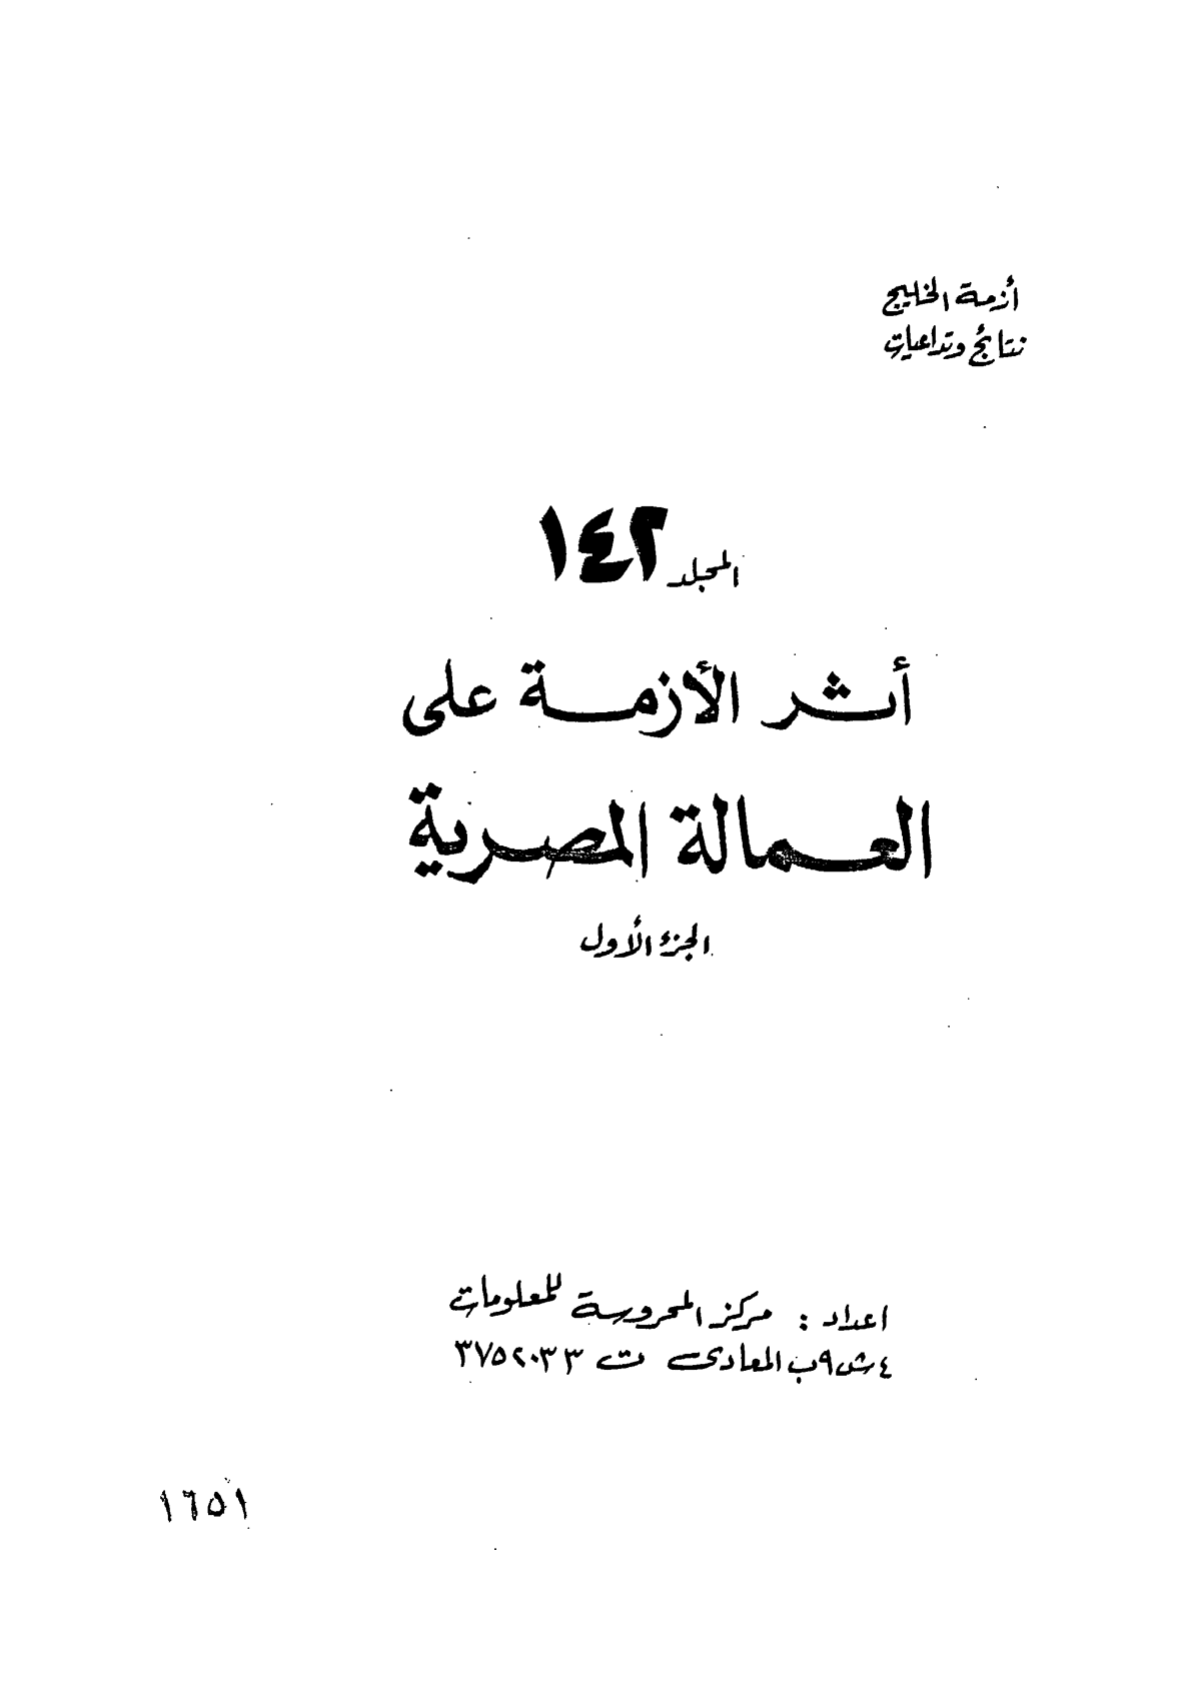 أزمة الخليج
نتائج وتداعيات
المجلد ١٤٢
أثر الأزمة على
العمالة المصرية
الجزء الأول
اعداد : مركز المحروسة للمعلومات
٤ ش ٩ب المعادى ت ٣٧٥٢٠٣٣
١٦٥١